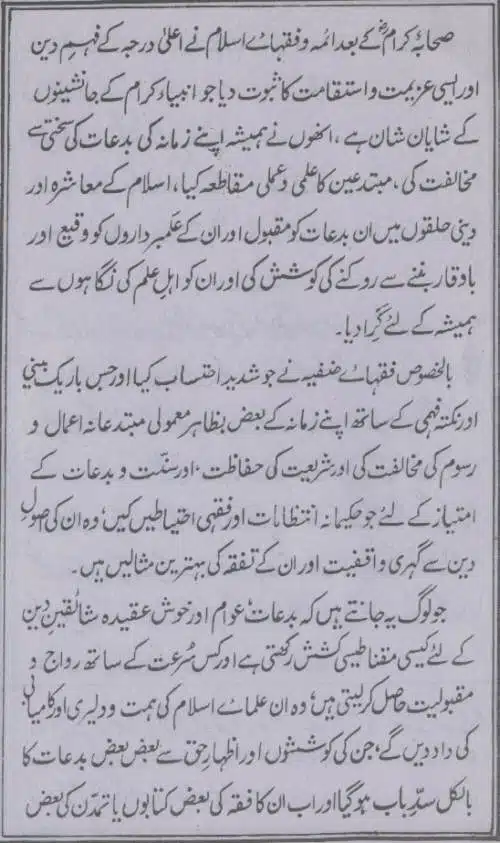 صحابۂ کرامؓ کے بعد ائمہ و فقہائے اسلام نے اعلیٰ درجہ کے فہمِ دین
اور ایسی عزیمت و استقامت کا ثبوت دیا جو انبیاء کرام کے جانشینوں
کے شایان شان ہے، انھوں نے ہمیشہ اپنے زمانہ کی بدعات کی سختی سے
مخالفت کی، مبتدعین کا علمی و عملی مقاطعہ کیا، اسلام کے معاشرہ اور
دینی حلقوں میں ان بدعات کو مقبول اور ان کے علمبرداروں کو وقیع اور
باوقار بننے سے روکنے کی کوشش کی اور ان کو اہلِ علم کی نگاہوں سے
ہمیشہ کے لئے گرا دیا۔
بالخصوص فقہائے حنفیہ نے جو شدید احتساب کیا اور جس باریک بینی
اور نکتہ فہمی کے ساتھ اپنے زمانہ کے بعض بظاہر معمولی مبتدعانہ اعمال و
رسوم کی مخالفت کی اور شریعت کی حفاظت، اور سنّت و بدعات کے
امتیاز کے لئے جو حکیمانہ انتظامات اور فقہی احتیاطیں کیں، وہ ان کی اصولِ
دین سے گہری واقفیت اور ان کے تفقہ کی بہترین مثالیں ہیں۔
جو لوگ یہ جانتے ہیں کہ بدعات، عوام اور خوش عقیدہ شائقینِ دین
کے لئے کیسی مقناطیسی کشش رکھتی ہے اور کس سُرعت کے ساتھ رواج و
مقبولیت حاصل کر لیتی ہیں، وہ ان علمائے اسلام کی ہمت و دلیری اور کامیابی
کی داد دیں گے، جن کی کوششوں اور اظہارِ حق سے بعض بعض بدعات کا
بالکل سدِّ باب ہو گیا اور اب ان کا فقہ کی بعض کتابوں یا تمدّن کی بعض